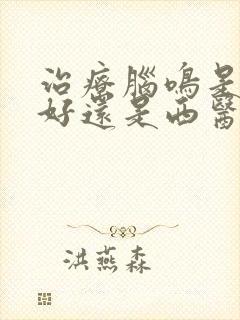 治療腦鳴是
好還是西醫
洪燕森